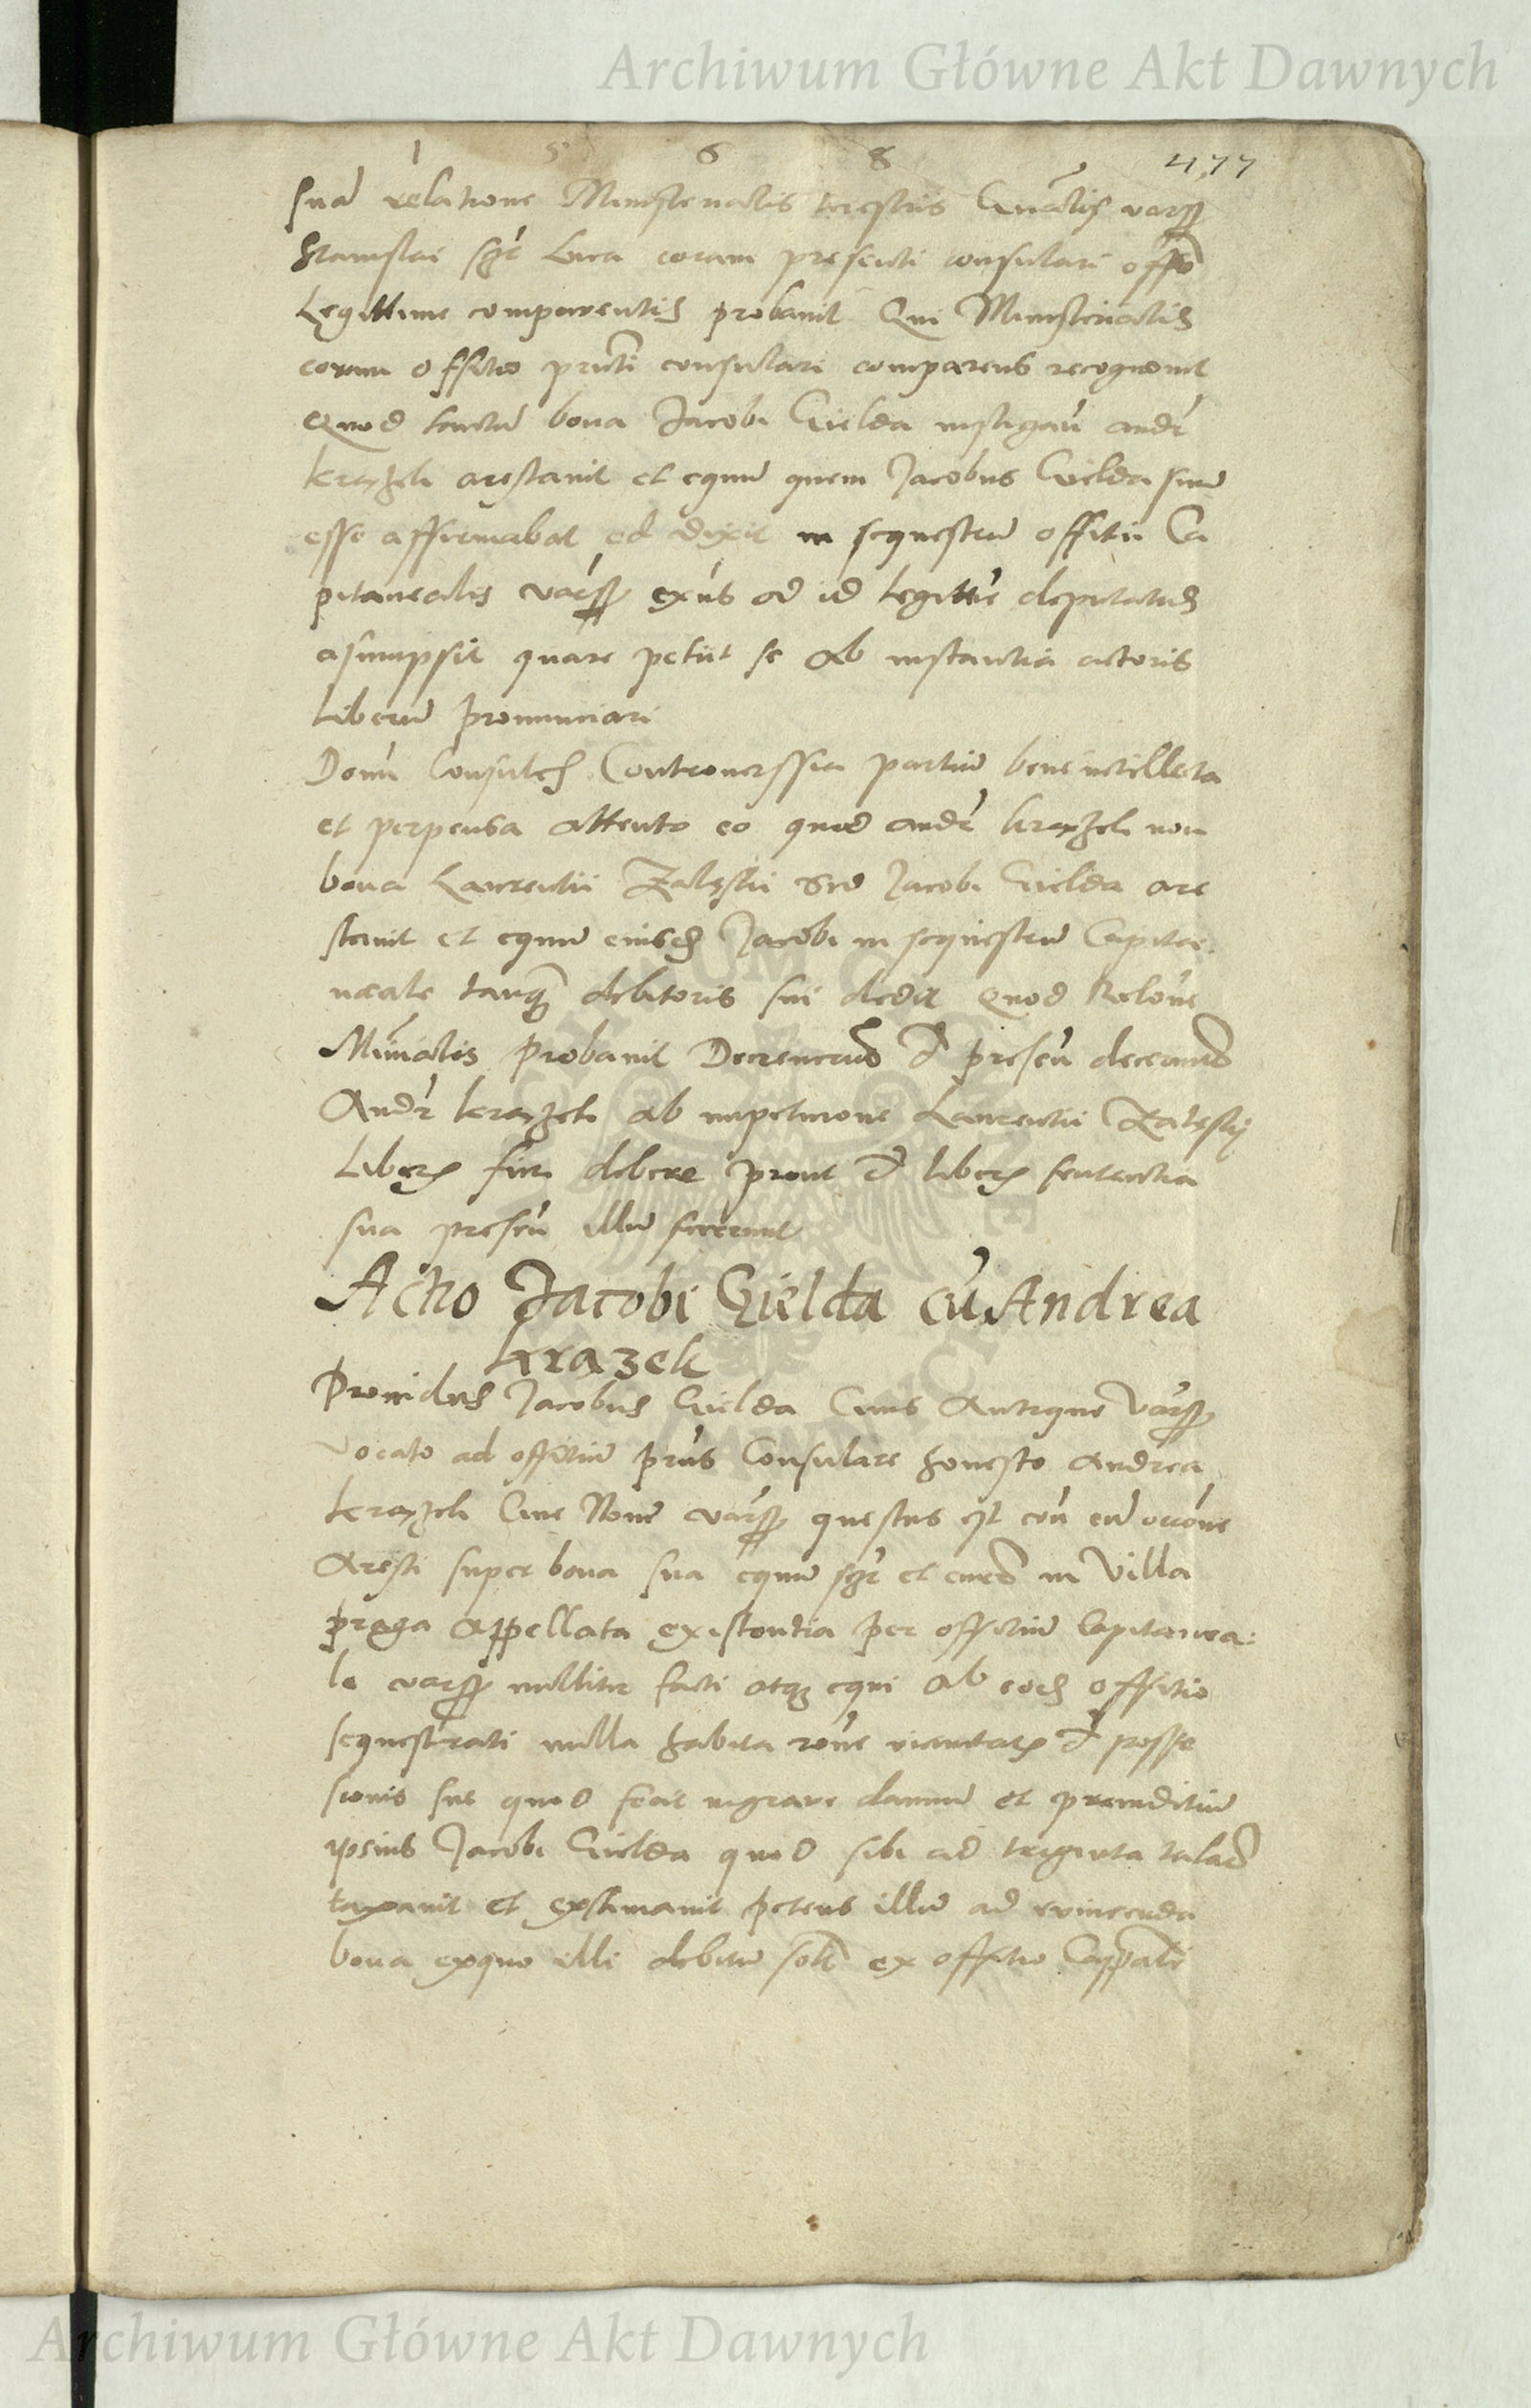 Archiwum Główne Akt Dawnych
1 5 6 8 477
sua relatione Ministerialis terestris
Stanislai Luca coram presenti consulari offo
Legittime comparentis probavit Qui Ministerialis
coram offitio prnti consulari comparens recognovit
Quod tantu bona Jacobi Gielda instigan Andr
krazek arestavit et equu quem Jacobus Gielda suu
esse affirmabat in sequestru offitii Ca
pitanealis Varss ad id legittie deputatus
asumpsit quare petiit se ab instantia actoris
liberu pronunciari
Domi Consules Controverssia partiu bene intellecta
et perpensa attento eo quod Andr krazek non
bona Laurentii Zaleskii sed Jacobi Gielda are
stavit et equu eiusd Jacobi in sequestru Capita
neale tanq debitoris sui dedit quod Relone
Minialis probavit
Andr krazek ab impetitione Laurentii Zaleskij
Liber fieri debere prout liber sententia
sua presen illu fecerunt
Actio Jacobi Gielda cu Andrea
krazek
Providus Jacobus Gielda Civis Antique Vars
vocato ad offitiu prns Consulare honesto Andrea
krazek Cive Nove Vars questus est
Aresti super bona sua equu in Villa
praga appellata existentia per offitiu Capitanea:
le Vars nulliter facti atq equi ab eod offitio
sequestrati nulla habita rone posse
sionis sue quod fecit in grave damnu et preiuditiu
ipsius Jacobi Gielda quod sibi ad triginta talad
taxavit et exstimavit petens illu ad evincenda
bona exquo illi debitu ex offitio
Archiwum Główne Akt Dawnych